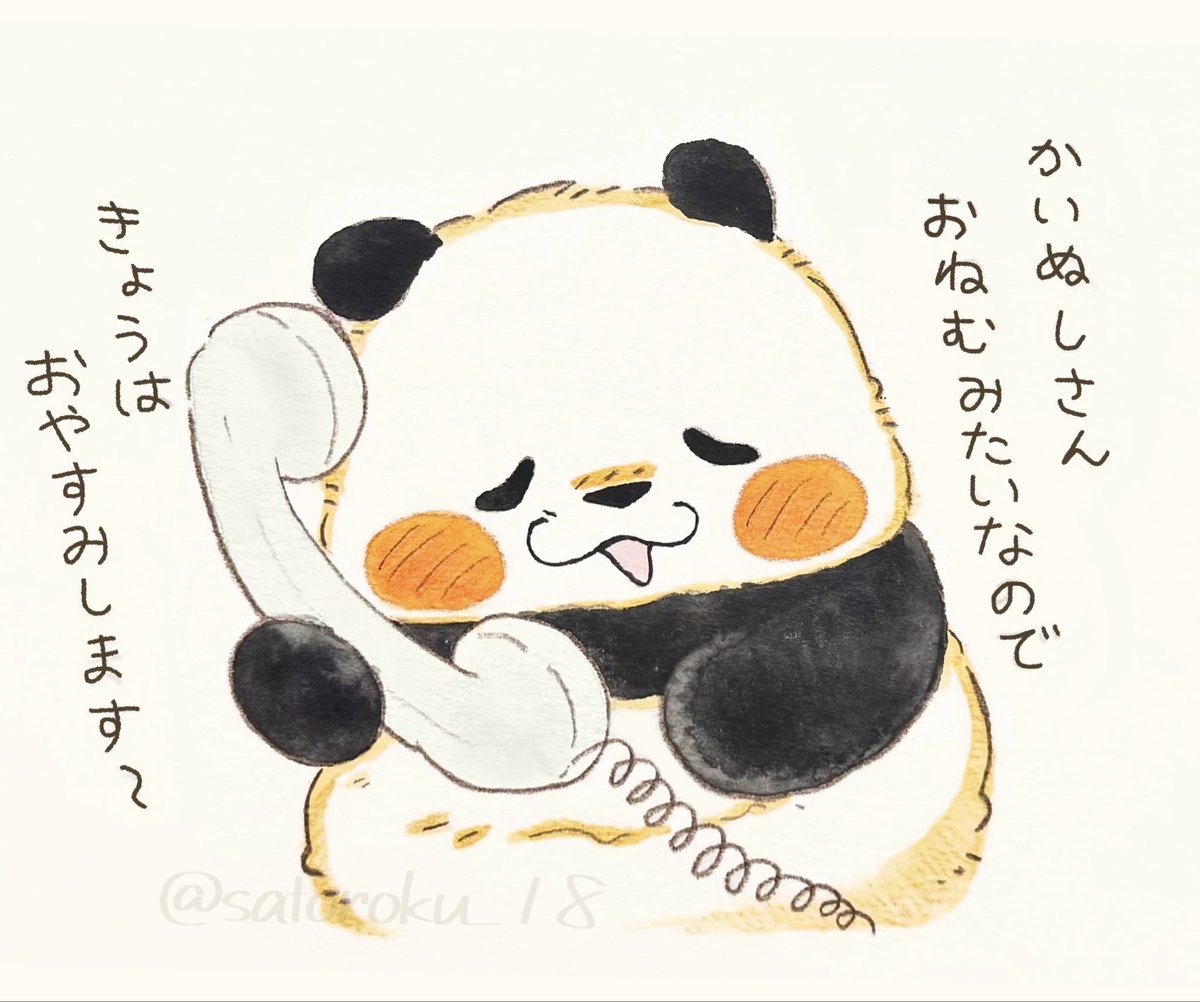 かいぬしさん
おねむみたいなので
きょうは
おやすみします〜
@satoroku_18